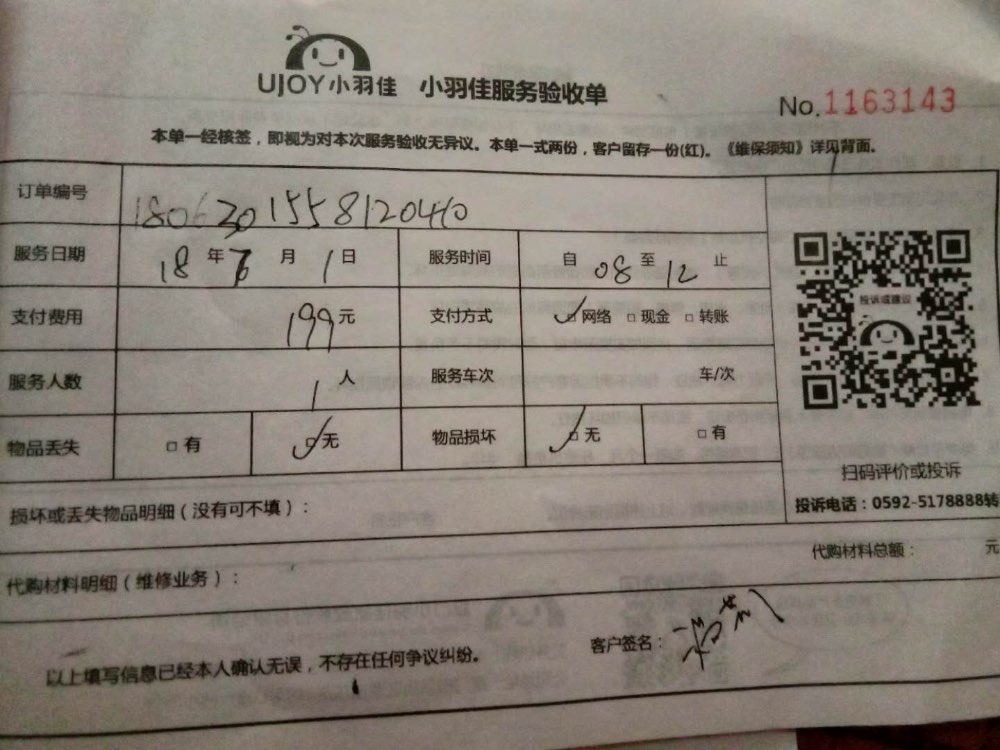 UJOY小羽佳 小羽佳服务验收单
No.1163143
本单一经核签，即视为对本次服务验收无异议。本单一式两份，客户留存一份(红)。《维保须知》详见背面。
订单编号 180630155812040
服务日期 18年7月1日 服务时间 自08至12止
支付费用 199元 支付方式 ☑网络 □现金 □转账
投诉或建议
服务人数 1人 服务车次 车/次
物品丢失 □有 ☑无 物品损坏 ☑无 □有
扫码评价或投诉
损坏或丢失物品明细（没有可不填）：
投诉电话：0592-5178888转
代购材料总额： 元
代购材料明细（维修业务）：
客户签名：
以上填写信息已经本人确认无误，不存在任何争议纠纷。